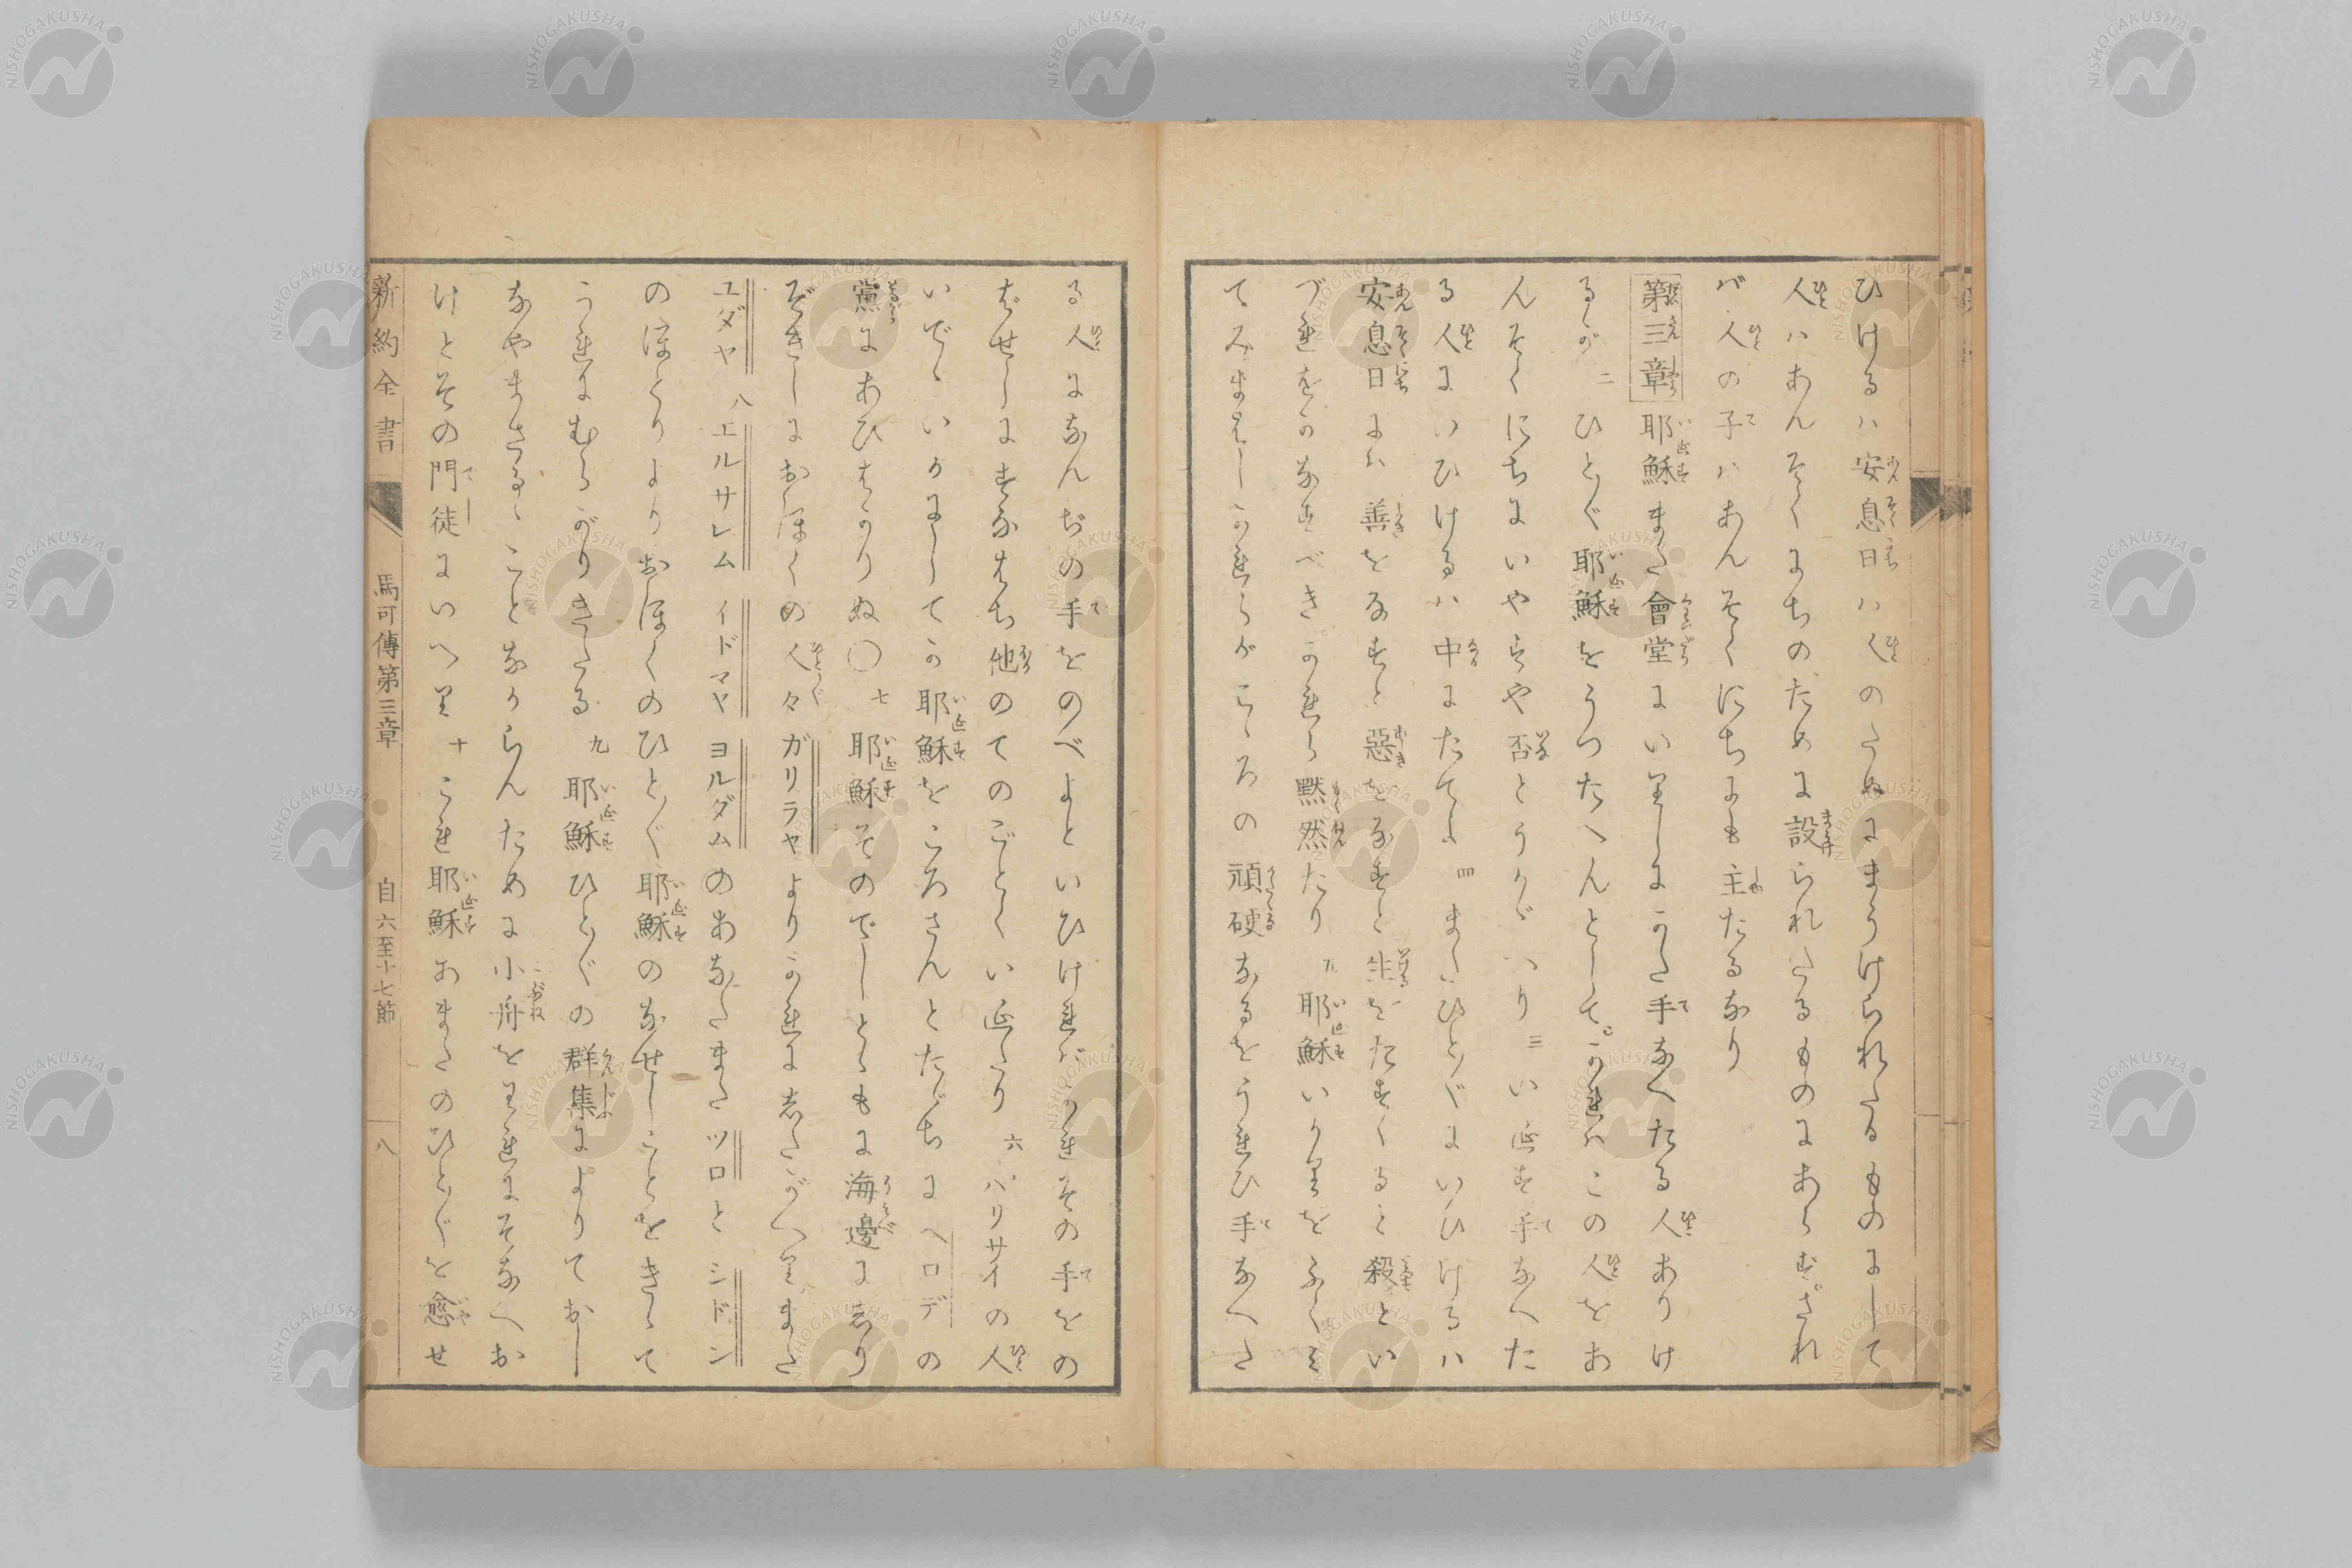 ひけるハ安息日ハ人のためにまうけられたるものにして
人ハあんそくにちのために設られたるものにあらずされ
バ人の子ハあんそくにちにも主たるなり
第三章 耶穌また會堂にいりしにかた手なへたる人ありけ
るが 二 ひと〴〵耶穌をうつたへんとしてかれハこの人をあ
んそくにちにいやすや否とうかゞへり 三 いゑす手なへた
る人にいひけるハ中にたてよ 四 またひと〴〵にいひけるハ
安息日にハ善をなすと惡をなすと生をたすくると殺とい
づれをかなすべきかれら黙然たり 五 耶穌いかりをふくみ
てみまはしかれらがこゝろの頑硬なるをうれひ手なへた
る人になんぢの手をのべよといひけれバかれその手をの
ばせしにすなはち他のてのごとくいゑたり 六 パリサイの人
いでゝいかにしてか耶穌をころさんとたゞちにヘロデの
黨にあひはかりぬ〇 七 耶穌そのでしとゝもに海邊にしり
ぞきしにおほくの人々ガリラヤよりかれにしたがへりまた
ユダヤ 八 エルサレム イドマヤ ヨルダムのあなたまたツロとシドン
のほとりよりおほくのひと〴〵耶穌のなせしことをきゝて
うれにむらがりきたる 九 耶穌ひと〴〵の群集によりておし
なやまさるゝことなからんために小舟をわれにそなへお
けとその門徒にいへり 十 これ耶穌あまたのひと〴〵を愈せ
新約全書 馬可傳第三章 自六至十七節 八
NISHOGAKUSHA